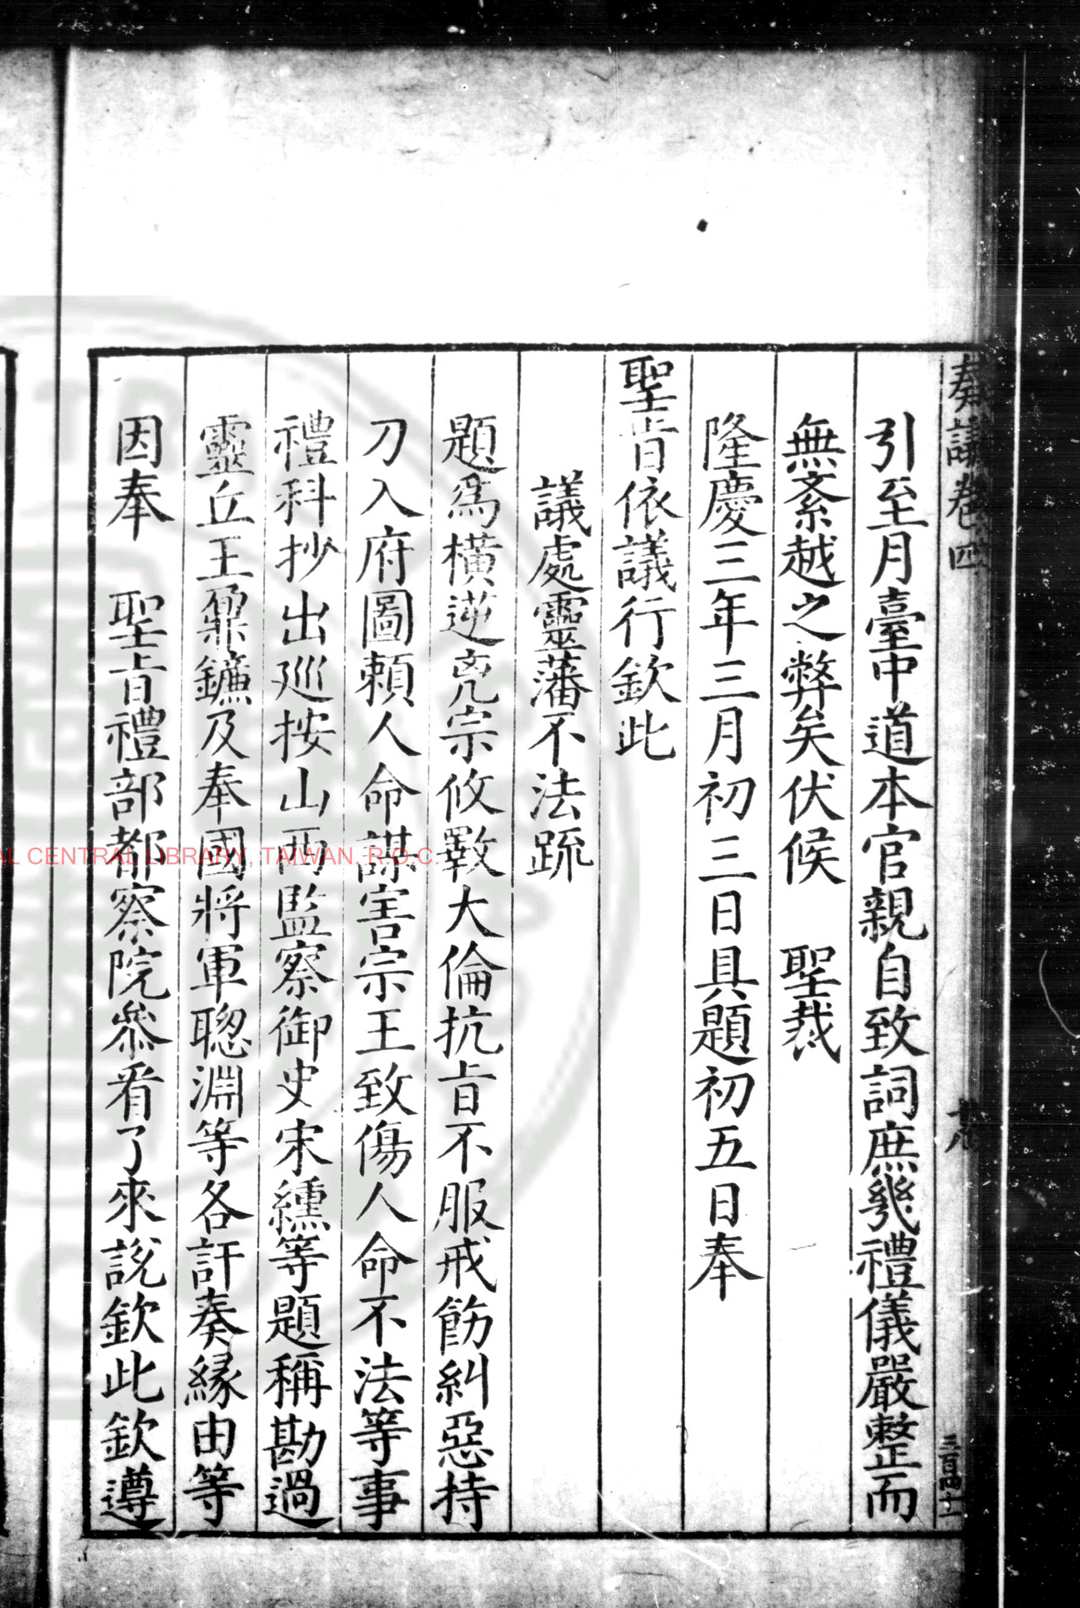 奏議卷四
引至月臺中道本官親自致詞庶幾禮儀嚴整而
無紊越之弊矣伏候　聖裁
隆慶三年三月初三日具題初五日奉
聖旨依議行欽此
議處靈藩不法疏
題爲橫逆兇宗攸斁大倫抗旨不服戒飭糾惡持
刀入府圖賴人命謀害宗王致傷人命不法等事
禮科抄出巡按山西監察御史宋纁等題稱勘過
靈丘王鼐鐮及奉國將軍聰淵等各訐奏緣由等
因奉　聖旨禮部都察院叅看了來說欽此欽遵
AL CENTRAL LIBRARY, TAIWAN, R.O.C.